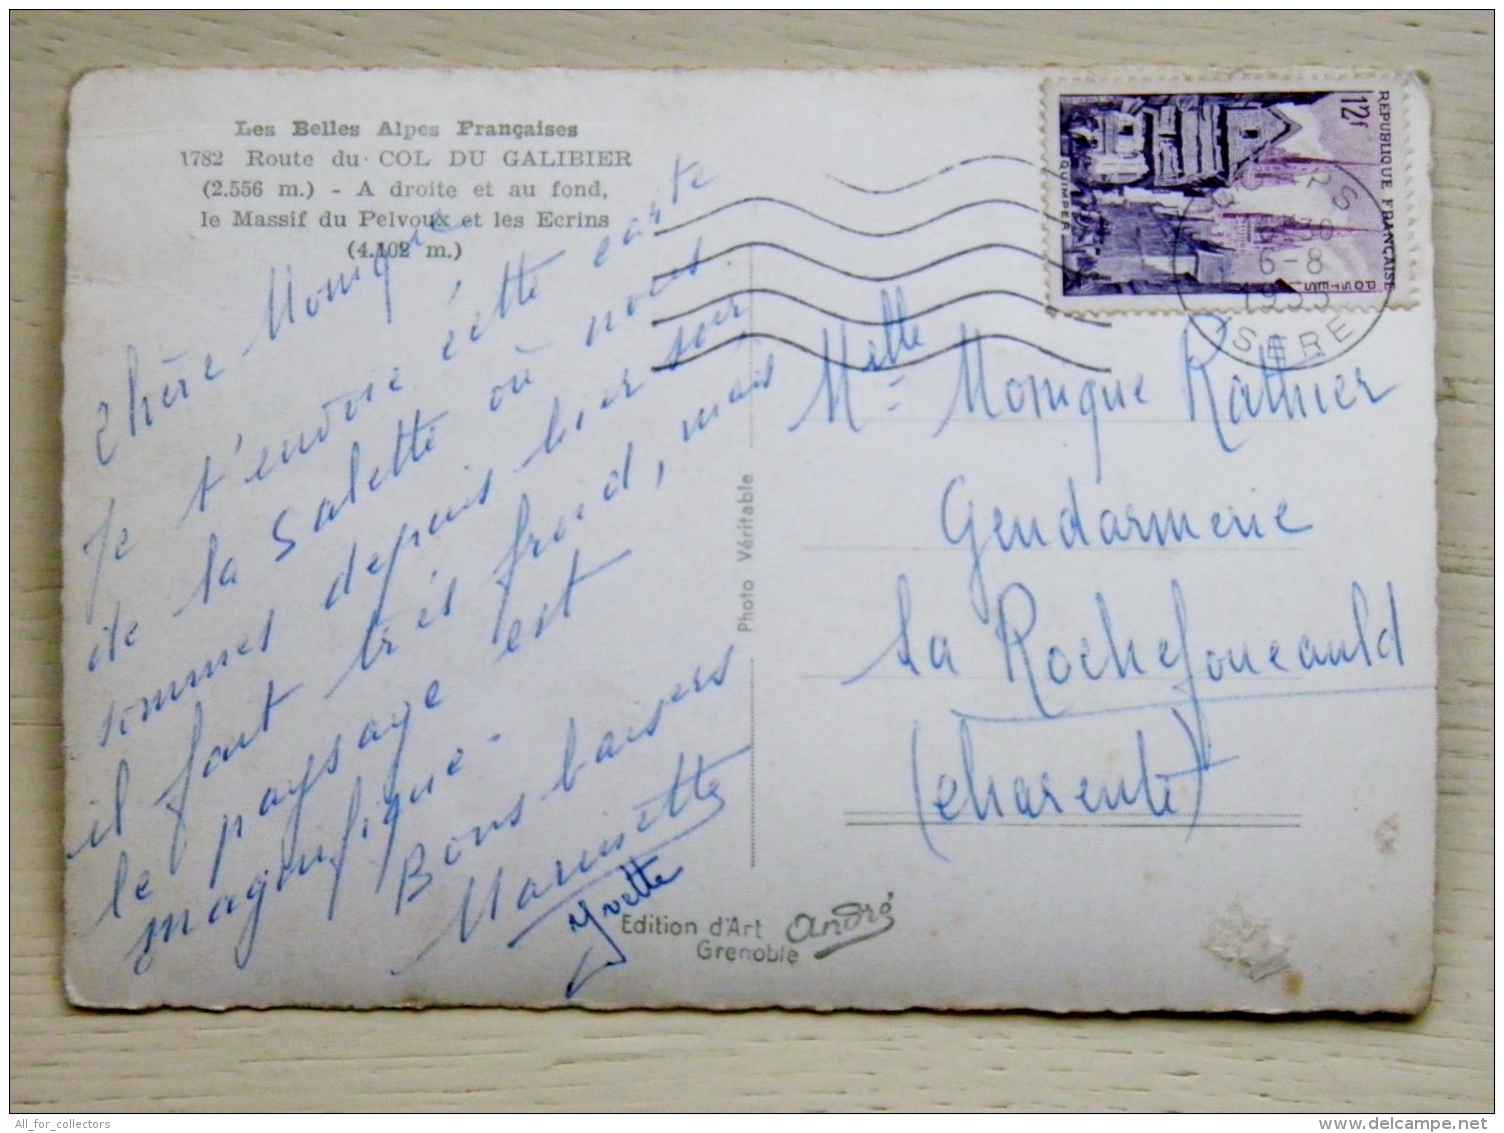 Les Belles Alpes Françaises
1782 Route du COL DU GALIBIER
(2.556 m.) - A droite et au fond,
le Massif du Pelvoux et les Ecrins
(4.102 m.)
Chère Monique
Je t'envoie cette carte
de la Salette où nous
sommes depuis hier soir
il fait très froid, mais
le paysage est
magnifique -
Bons baisers
Yvette
Photo Véritable
Edition d'Art André
Grenoble
RÉPUBLIQUE FRANÇAISE
12f
POSTES
QUIMPER
PS
6-8
1955
ISERE
Melle Monique Rathier
Gendarmerie
La Rochefoucauld
(Charente)
All_for_collectors
www.delcampe.net